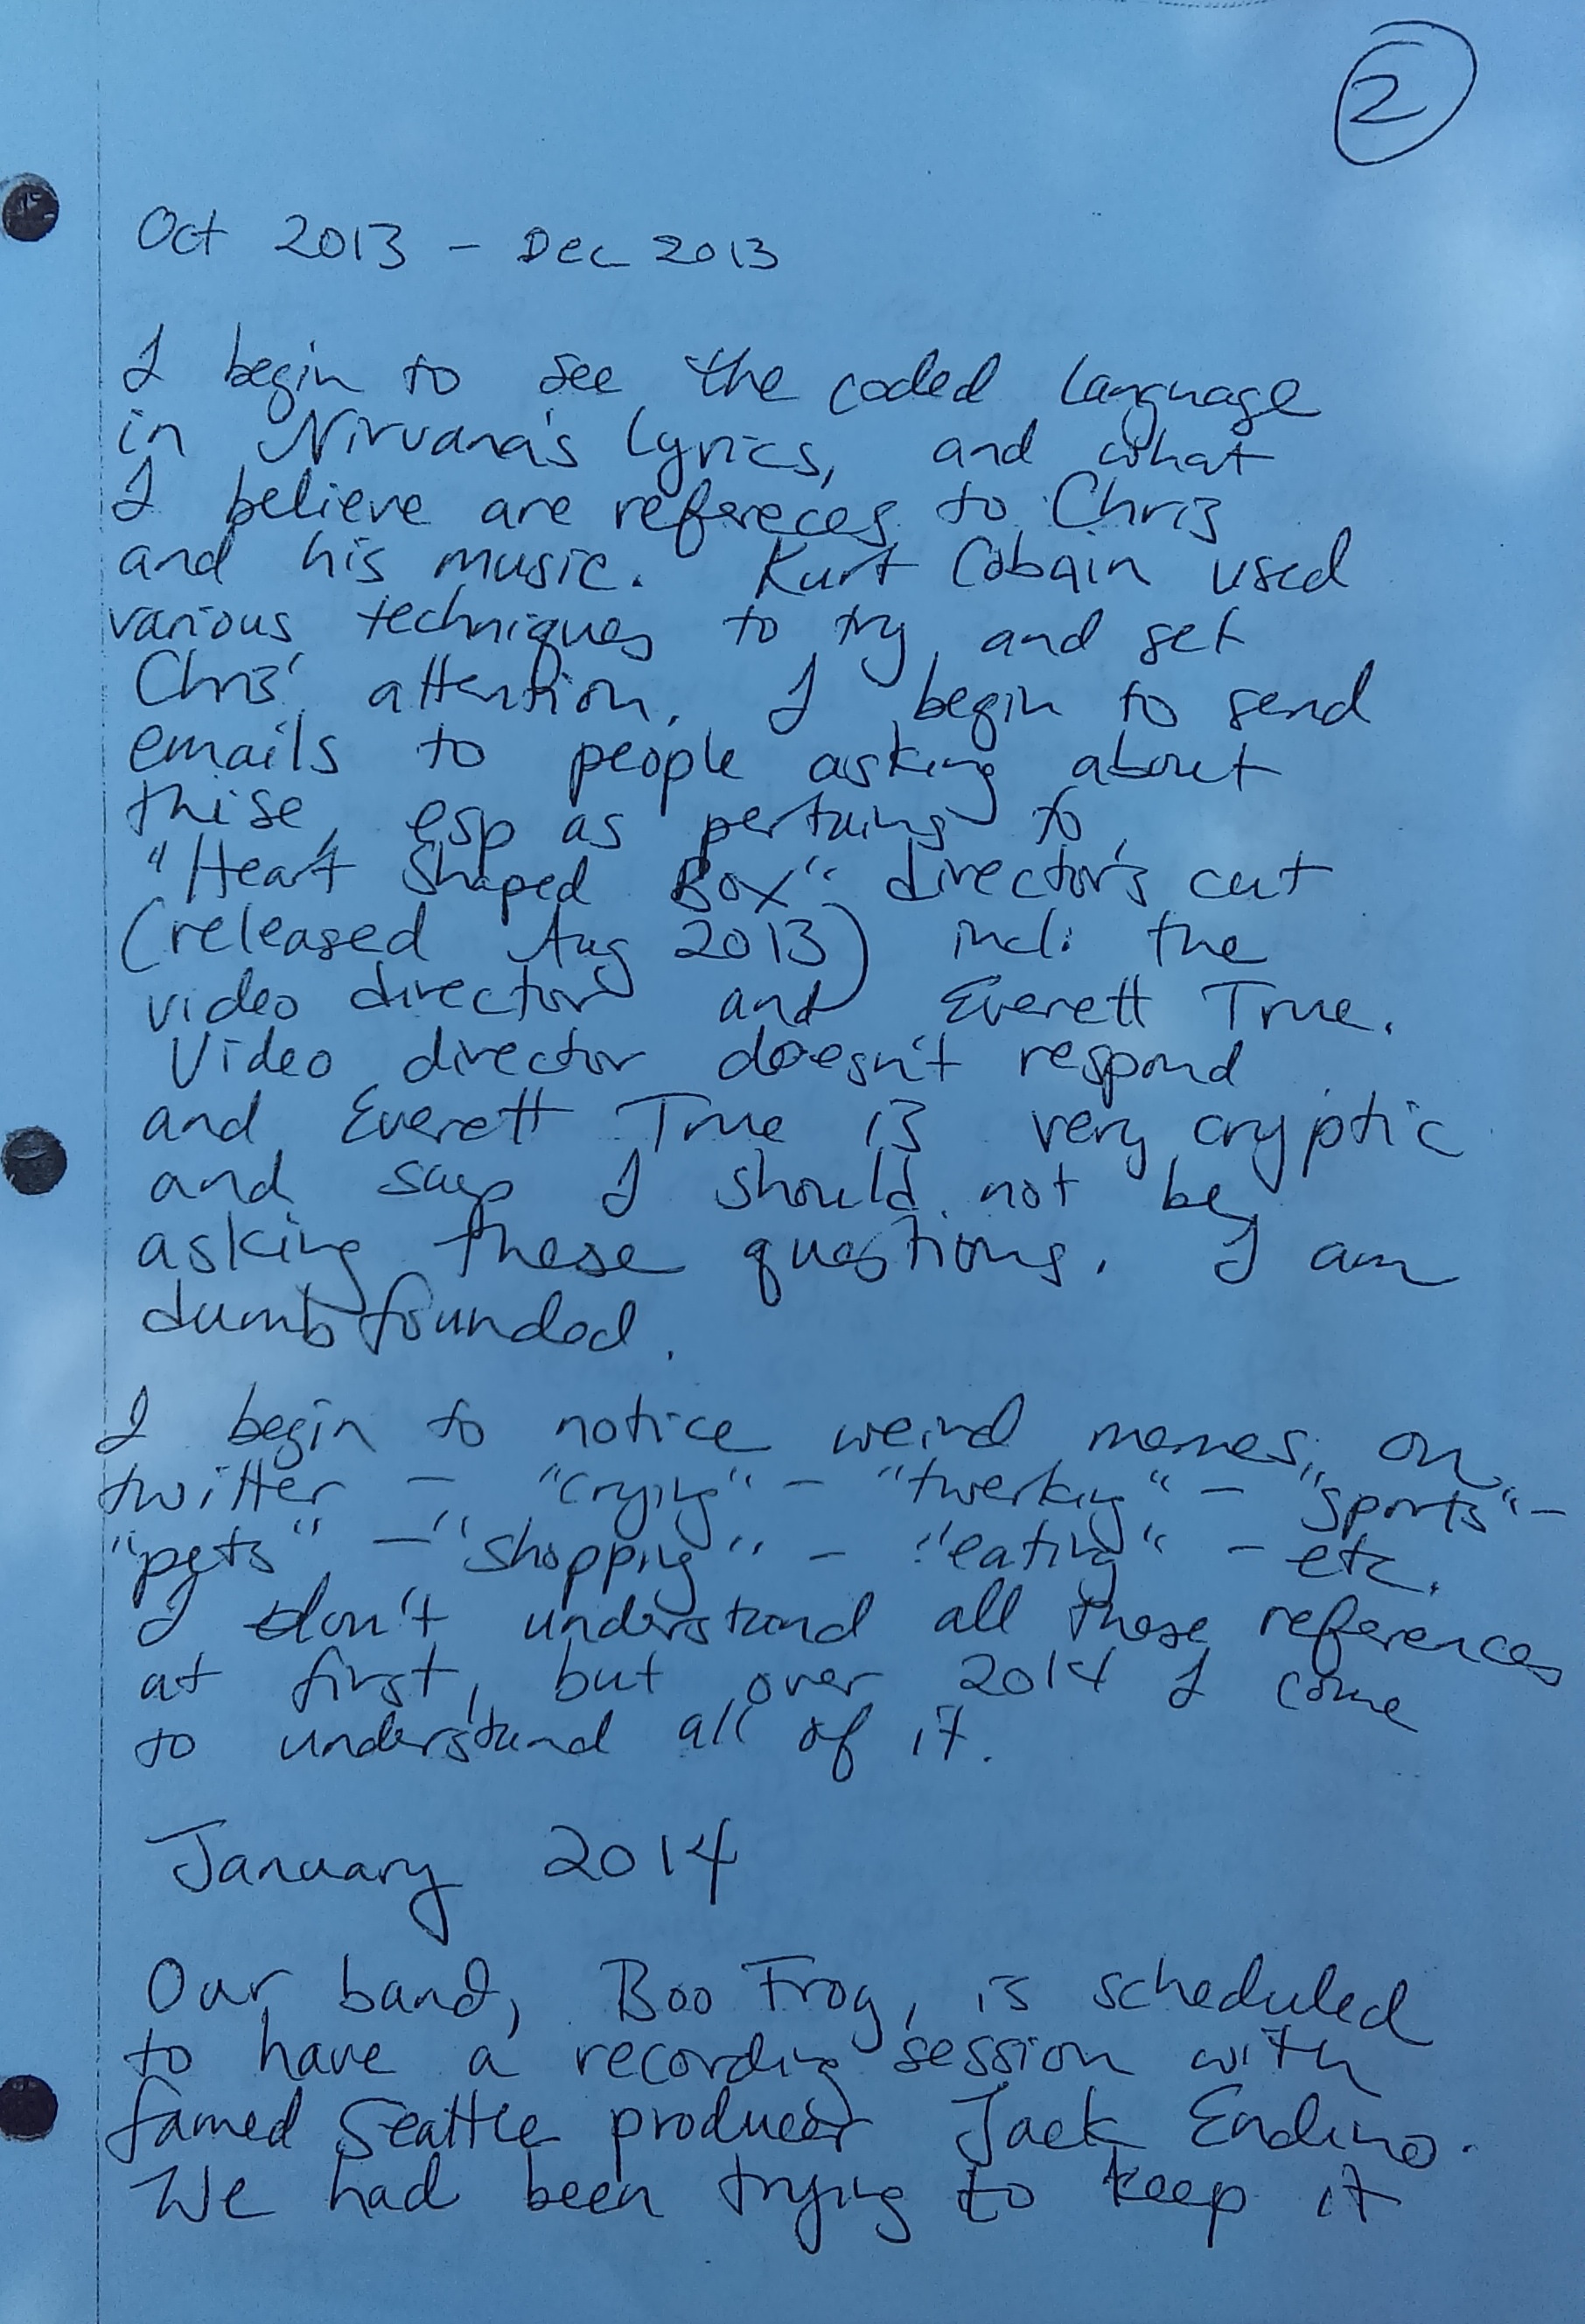 2
Oct 2013 - Dec 2013
I begin to see the coded language
in Nirvana's lyrics, and what
I believe are refereces to Chris
and his music. Kurt Cobain used
various techniques to try and get
Chris' attention. I begin to send
emails to people asking about
thise, esp as pertains to
"Heart Shaped Box" director's cut
(released Aug 2013) incl. the
video director and Everett True.
Video director doesn't respond
and Everett True is very cryptic
and says I should not be
asking these questions. I am
dumbfounded.
I begin to notice weird memes, on
twitter - "crying" - "twerking" - "sports" -
"pets" - "shopping" - "eating" - etc.
I don't understand all these references
at first, but over 2014 I come
to understand all of it.
January 2014
Our band, Boo Frog, is scheduled
to have a recording session with
famed Seattle producer Jack Endino.
We had been trying to keep it